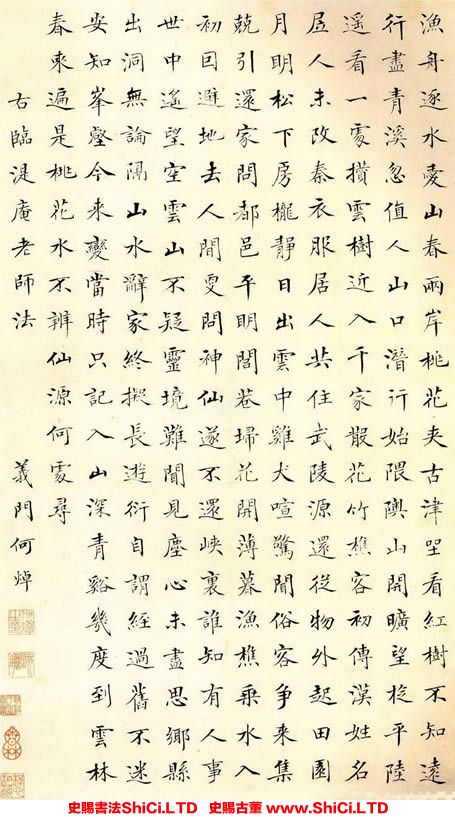 漁舟逐水愛山春兩岸桃花夾古津坐看紅樹不知遠
行盡青溪忽值人山口潛行始隈隩山開曠望旋平陸
遙看一處攢雲樹近入千家散花竹樵客初傳漢姓名
居人未改秦衣服居人共住武陵源還從物外起田園
月明松下房櫳靜日出雲中雞犬喧驚聞俗客爭來集
競引還家問都邑平明閭巷掃花開薄暮漁樵乘水入
初因避地去人間更問神仙遂不還峽裏誰知有人事
世中遙望空雲山不疑靈境難聞見塵心未盡思鄉縣
出洞無論隔山水辭家終擬長遊衍自謂經過舊不迷
安知峯壑今來變當時只記入山深青谿幾度到雲林
春來遍是桃花水不辨仙源何處尋
右臨湜庵老師法 義門何焯
史賜書法ShiCi.LTD 史賜古董 www.ShiCi.LTD